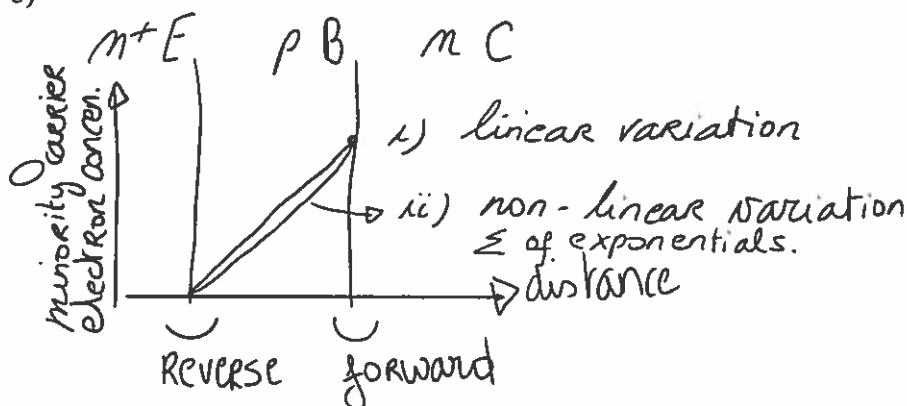 n+ E p B n C
minority carrier
electron concen.
i) linear variation
ii) non-linear variation
Σ of exponentials.
distance
Reverse forward